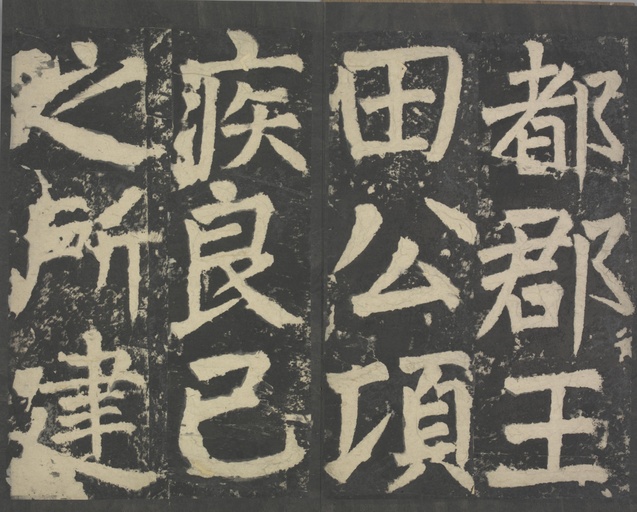 都郡王
田公項
疾良己
之所建